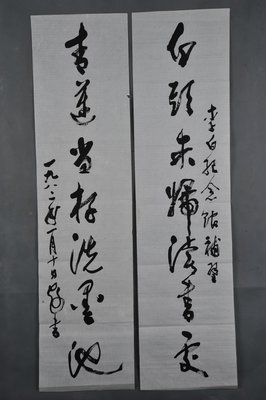 白頭未歸讀書處
李白纪念馆補壁
青蓮存洗墨池
一九八二年一月十日書